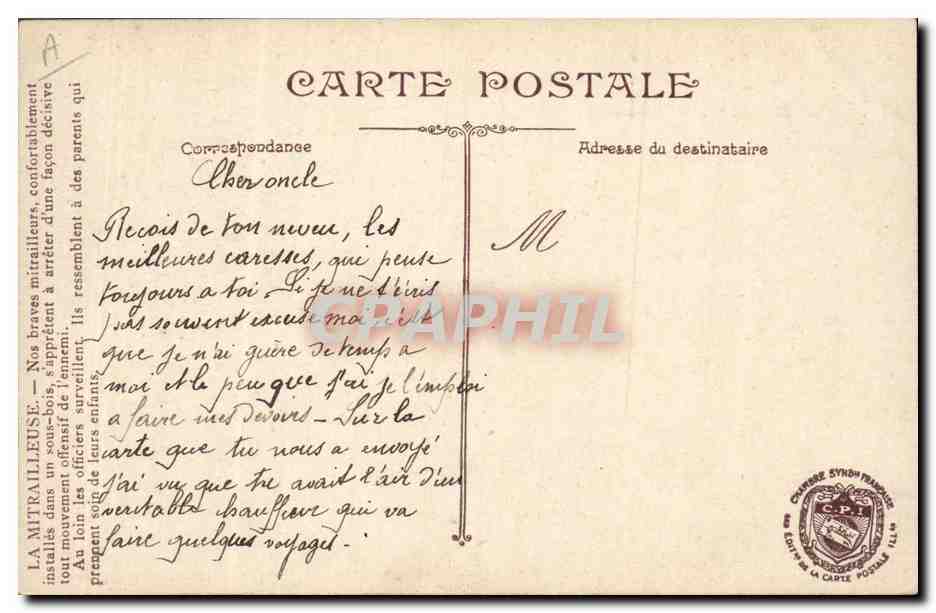 A
LA MITRAILLEUSE. — Nos braves mitrailleurs, confortablement
installés dans un sous-bois, s'apprêtent à arrêter d'une façon décisive
tout mouvement offensif de l'ennemi.
Au loin les officiers surveillent. Ils ressemblent à des parents qui
prennent soin de leurs enfants.
CARTE POSTALE
Correspondance
Adresse du destinataire
Cher oncle
Recois de ton neveu, les
meilleures caresses, qui pense
toujours a toi. Si je ne t'écris
pas souvent excuse moi c'est
que je n'ai guère de temps a
moi et le peu que j'ai je l'emploi
a faire mes devoirs - Sur la
carte que tu nous a envoyé
j'ai vu que tu avait l'air d'un
veritable chauffeur qui va
faire quelques voyages.
M
CPAPHIL
CHAMBRE SYND^le FRANÇAISE
C.P.I
DES ÉDIT^rs DE LA CARTE POSTALE ILL^ée